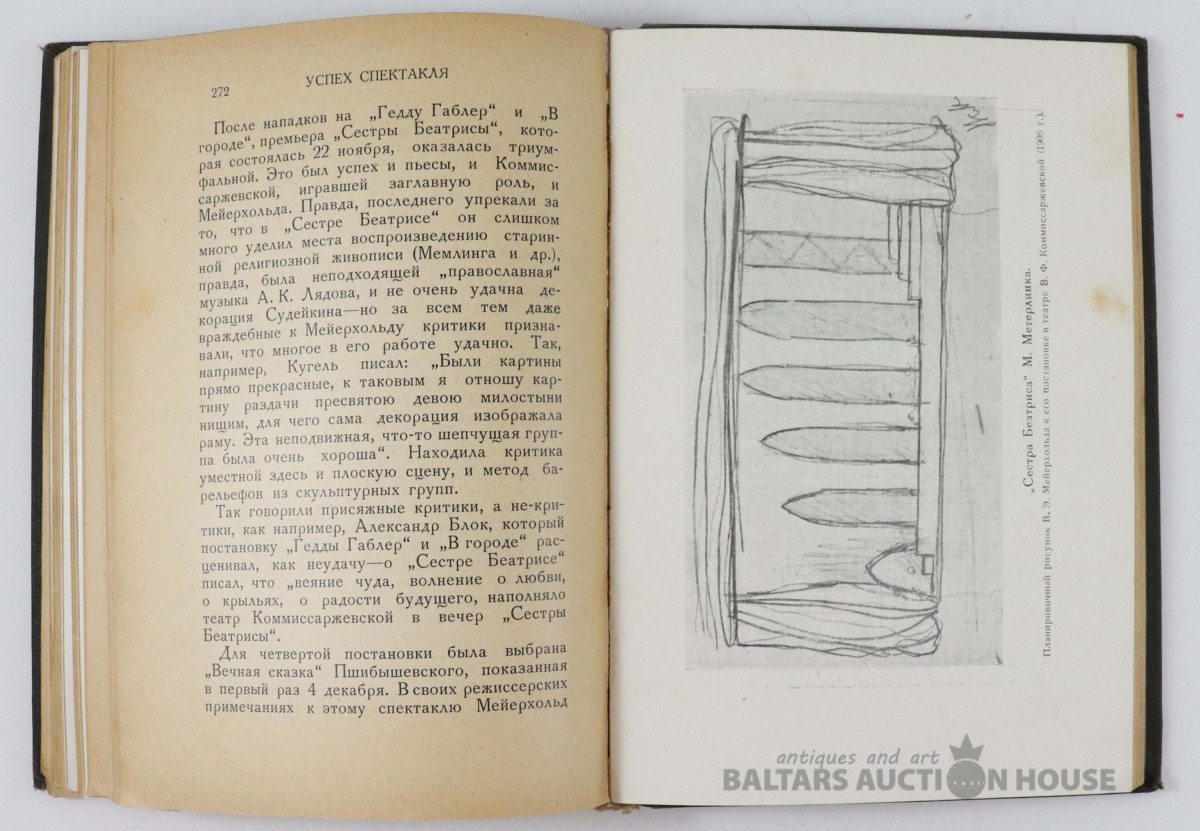 272
УСПЕХ СПЕКТАКЛЯ
После нападков на „Гедду Габлер“ и „В
городе“, премьера „Сестры Беатрисы“, кото-
рая состоялась 22 ноября, оказалась триум-
фальной. Это был успех и пьесы, и Коммис-
саржевской, игравшей заглавную роль, и
Мейерхольда. Правда, последнего упрекали за
то, что в „Сестре Беатрисе“ он слишком
много уделил места воспроизведению старин-
ной религиозной живописи (Мемлинга и др.),
правда, была неподходящей „православная“
музыка А. К. Лядова, и не очень удачна де-
корация Судейкина—но за всем тем даже
враждебные к Мейерхольду критики призна-
вали, что многое в его работе удачно. Так,
например, Кугель писал: „Были картины
прямо прекрасные, к таковым я отношу кар-
тину раздачи пресвятою девою милостыни
нищим, для чего сама декорация изображала
раму. Эта неподвижная, что-то шепчущая груп-
па была очень хороша“. Находила критика
уместной здесь и плоскую сцену, и метод ба-
рельефов из скульптурных групп.
Так говорили присяжные критики, а не-кри-
тики, как например, Александр Блок, который
постановку „Гедды Габлер“ и „В городе“ рас-
ценивал, как неудачу—о „Сестре Беатрисе“
писал, что „веяние чуда, волнение о любви,
о крыльях, о радости будущего, наполняло
театр Коммиссаржевской в вечер „Сестры
Беатрисы“.
Для четвертой постановки была выбрана
„Вечная сказка“ Пшибышевского, показанная
в первый раз 4 декабря. В своих режиссерских
примечаниях к этому спектаклю Мейерхольд
„Сестра Беатриса“ М. Метерлинка.
Планировочный рисунок В. Э. Мейерхольда к его постановке в театре В. Ф. Коммиссаржевской (1906 г.).
antiques and art
BALTARS AUCTION HOUSE